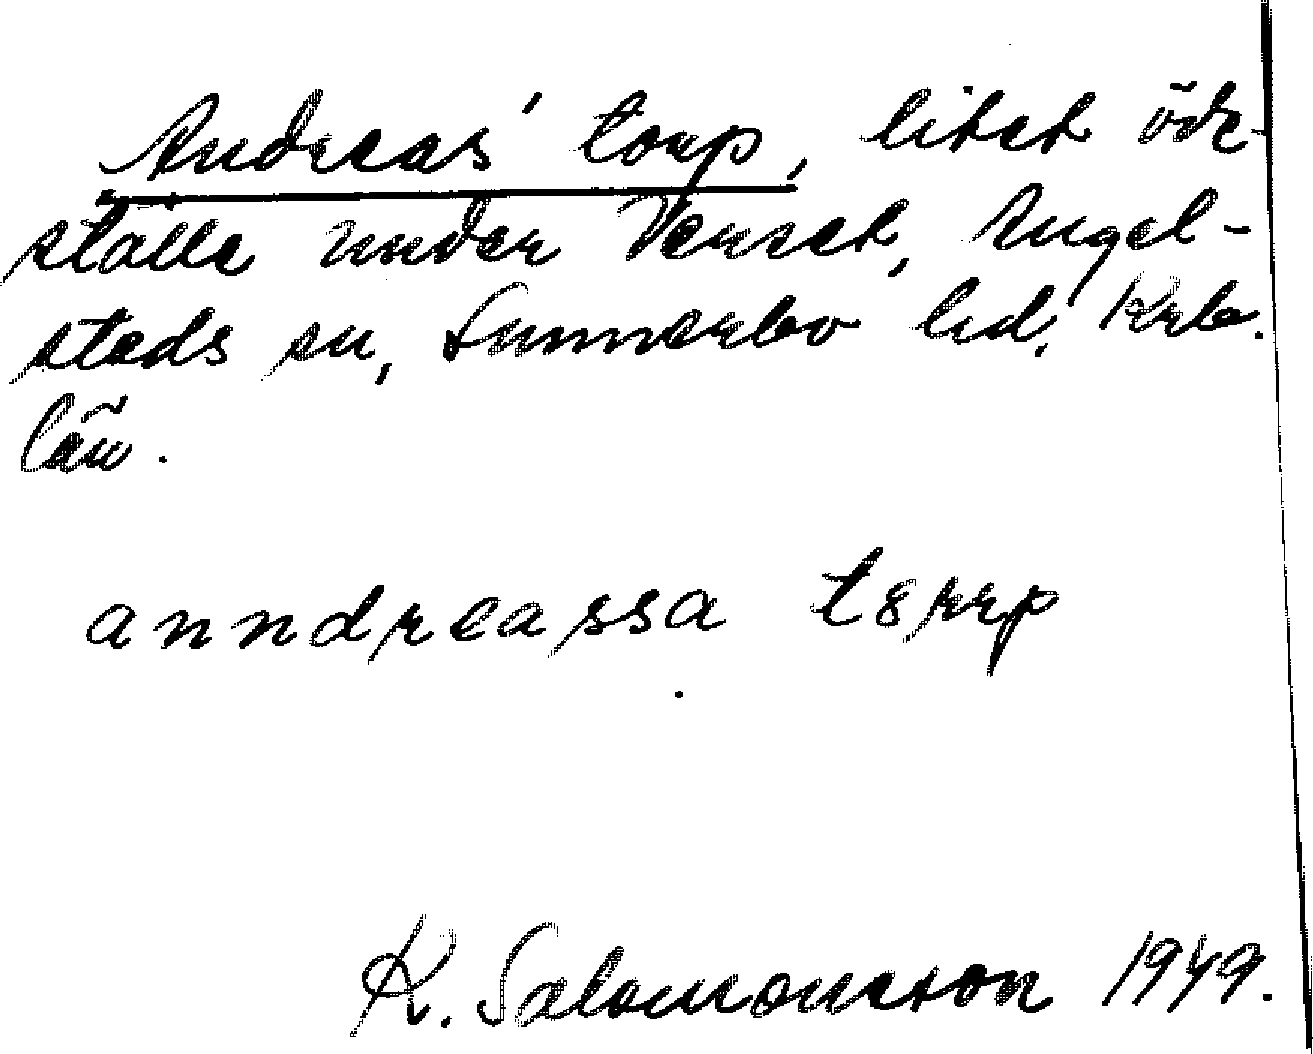 Andreas' torp, litet öde-
ställe under Venset, Angel-
steds sn, Sunnerbo hd, Krb.
län.
anndreassa t8rrp
K. Salomonsson 1949.